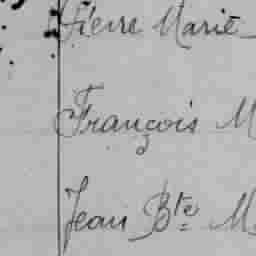 Pierre Marie
François M
Jean Bte M